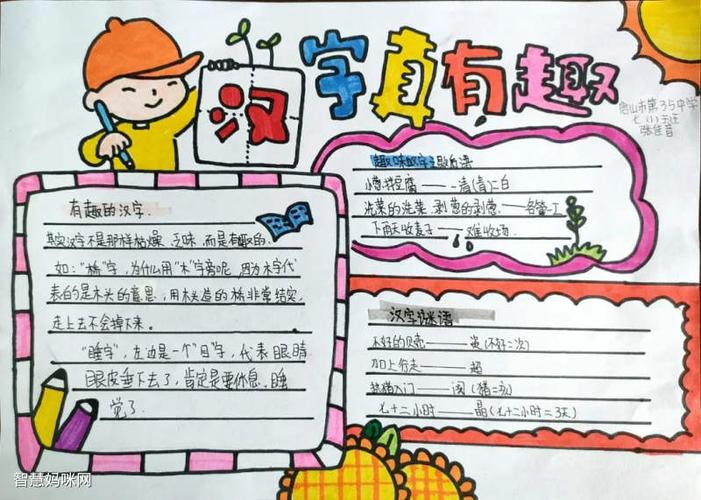 汉字真有趣
唐山市第35中学
七(1)
张佳音
有趣的汉字.
其实汉字不是那样枯燥、乏味,而是有趣的.
如:"桥"字,为什么用"木"字旁呢,因为木字代
表的是木头的意思,用木头造的桥非常结实,
走上去不会掉下来。
"睡字",左边是一个"目"字,代表眼睛
眼皮垂下去了,肯定是要休息、睡
觉了.
趣味汉字歇后语
小葱拌豆腐——一清(青)二白
洗菜的洗菜,剥葱的剥葱——各管一工
下雨天收麦子——难收场
汉字谜语
不好的贝壳——
加上行走——超
热猪入门——阂(猪=亥)
七十二小时——晶(七十二小时=3天)
智慧妈咪网